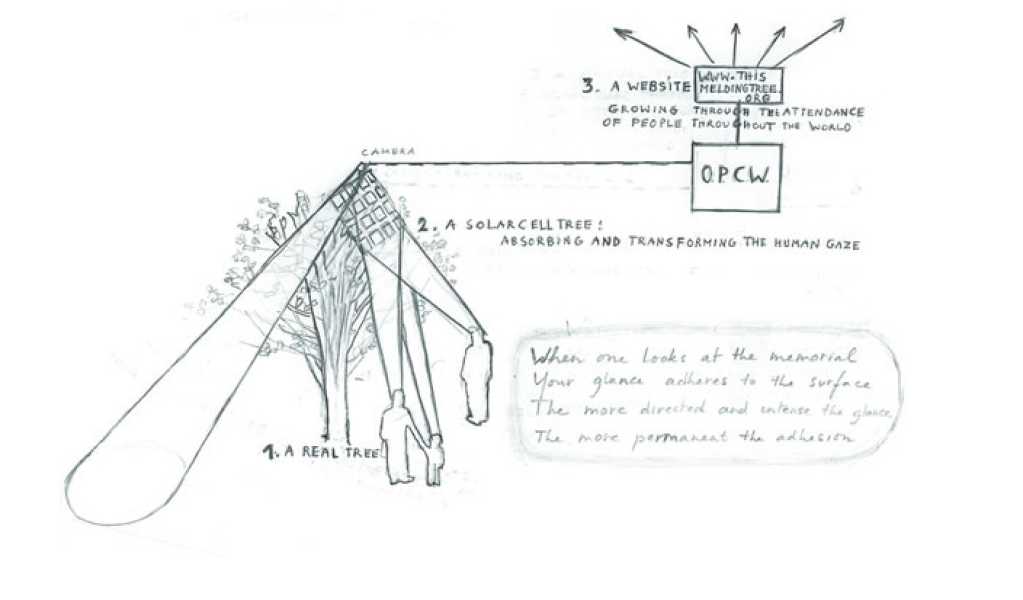 CAMERA
3. A WEBSITE
WWW.THIS
MELDINGTREE.
ORG
GROWING THROUGH THE ATTENDANCE
OF PEOPLE THROUGHOUT THE WORLD
O.P.C.W.
2. A SOLARCELLTREE:
ABSORBING AND TRANSFORMING THE HUMAN GAZE
1. A REAL TREE
When one looks at the memorial
Your glance adheres to the surface
The more directed and intense the glance
The more permanent the adhesion